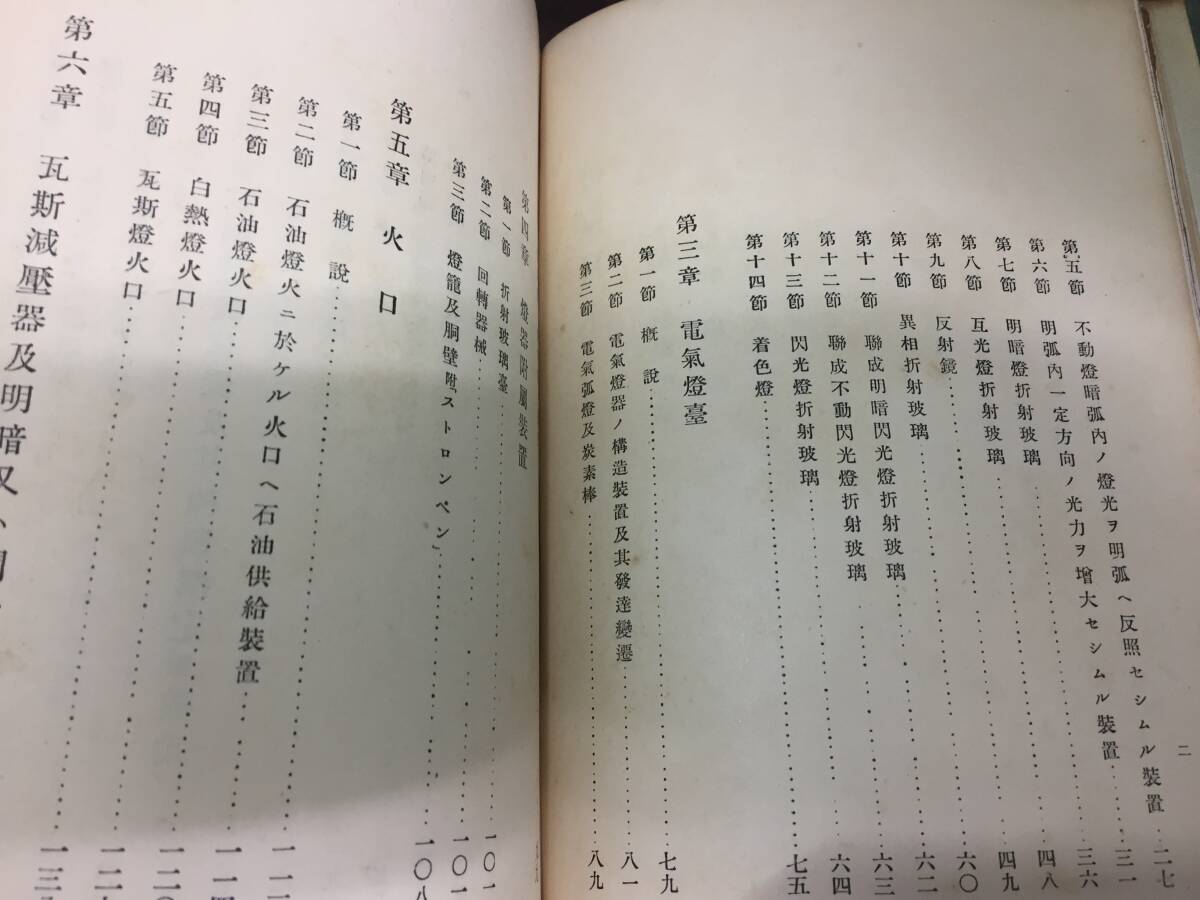 二
第五節 不動燈暗弧內ノ燈光ヲ明弧ヘ反照セシムル裝置 二七
第六節 明弧內一定方向ノ光力ヲ增大セシムル裝置 三一
第七節 明暗燈折射玻璃 三六
第八節 互光燈折射玻璃 四八
第九節 反射鏡 四九
第十節 異相折射玻璃 六〇
第十一節 聯成明暗閃光燈折射玻璃 六二
第十二節 聯成不動閃光燈折射玻璃 六三
第十三節 閃光燈折射玻璃 六四
第十四節 着色燈 七五
第三章 電氣燈臺
第一節 槪說 七九
第二節 電氣燈器ノ構造裝置及其發達變遷 八一
第三節 電氣弧燈及炭素棒 八九
第四章 燈器附屬裝置
第一節 折射玻璃臺 一〇一
第二節 回轉器械 一〇一
第三節 燈籠及胴壁附「ストロンペン」 一〇八
第五章 火口
第一節 槪說
第二節 石油燈火ニ於ケル火口ヘ石油供給裝置 一一
第三節 石油燈火口 一一四
第四節 白熱燈火口 一二〇
第五節 瓦斯燈火口 一二
第六章 瓦斯減壓器及明暗又ハ 一三